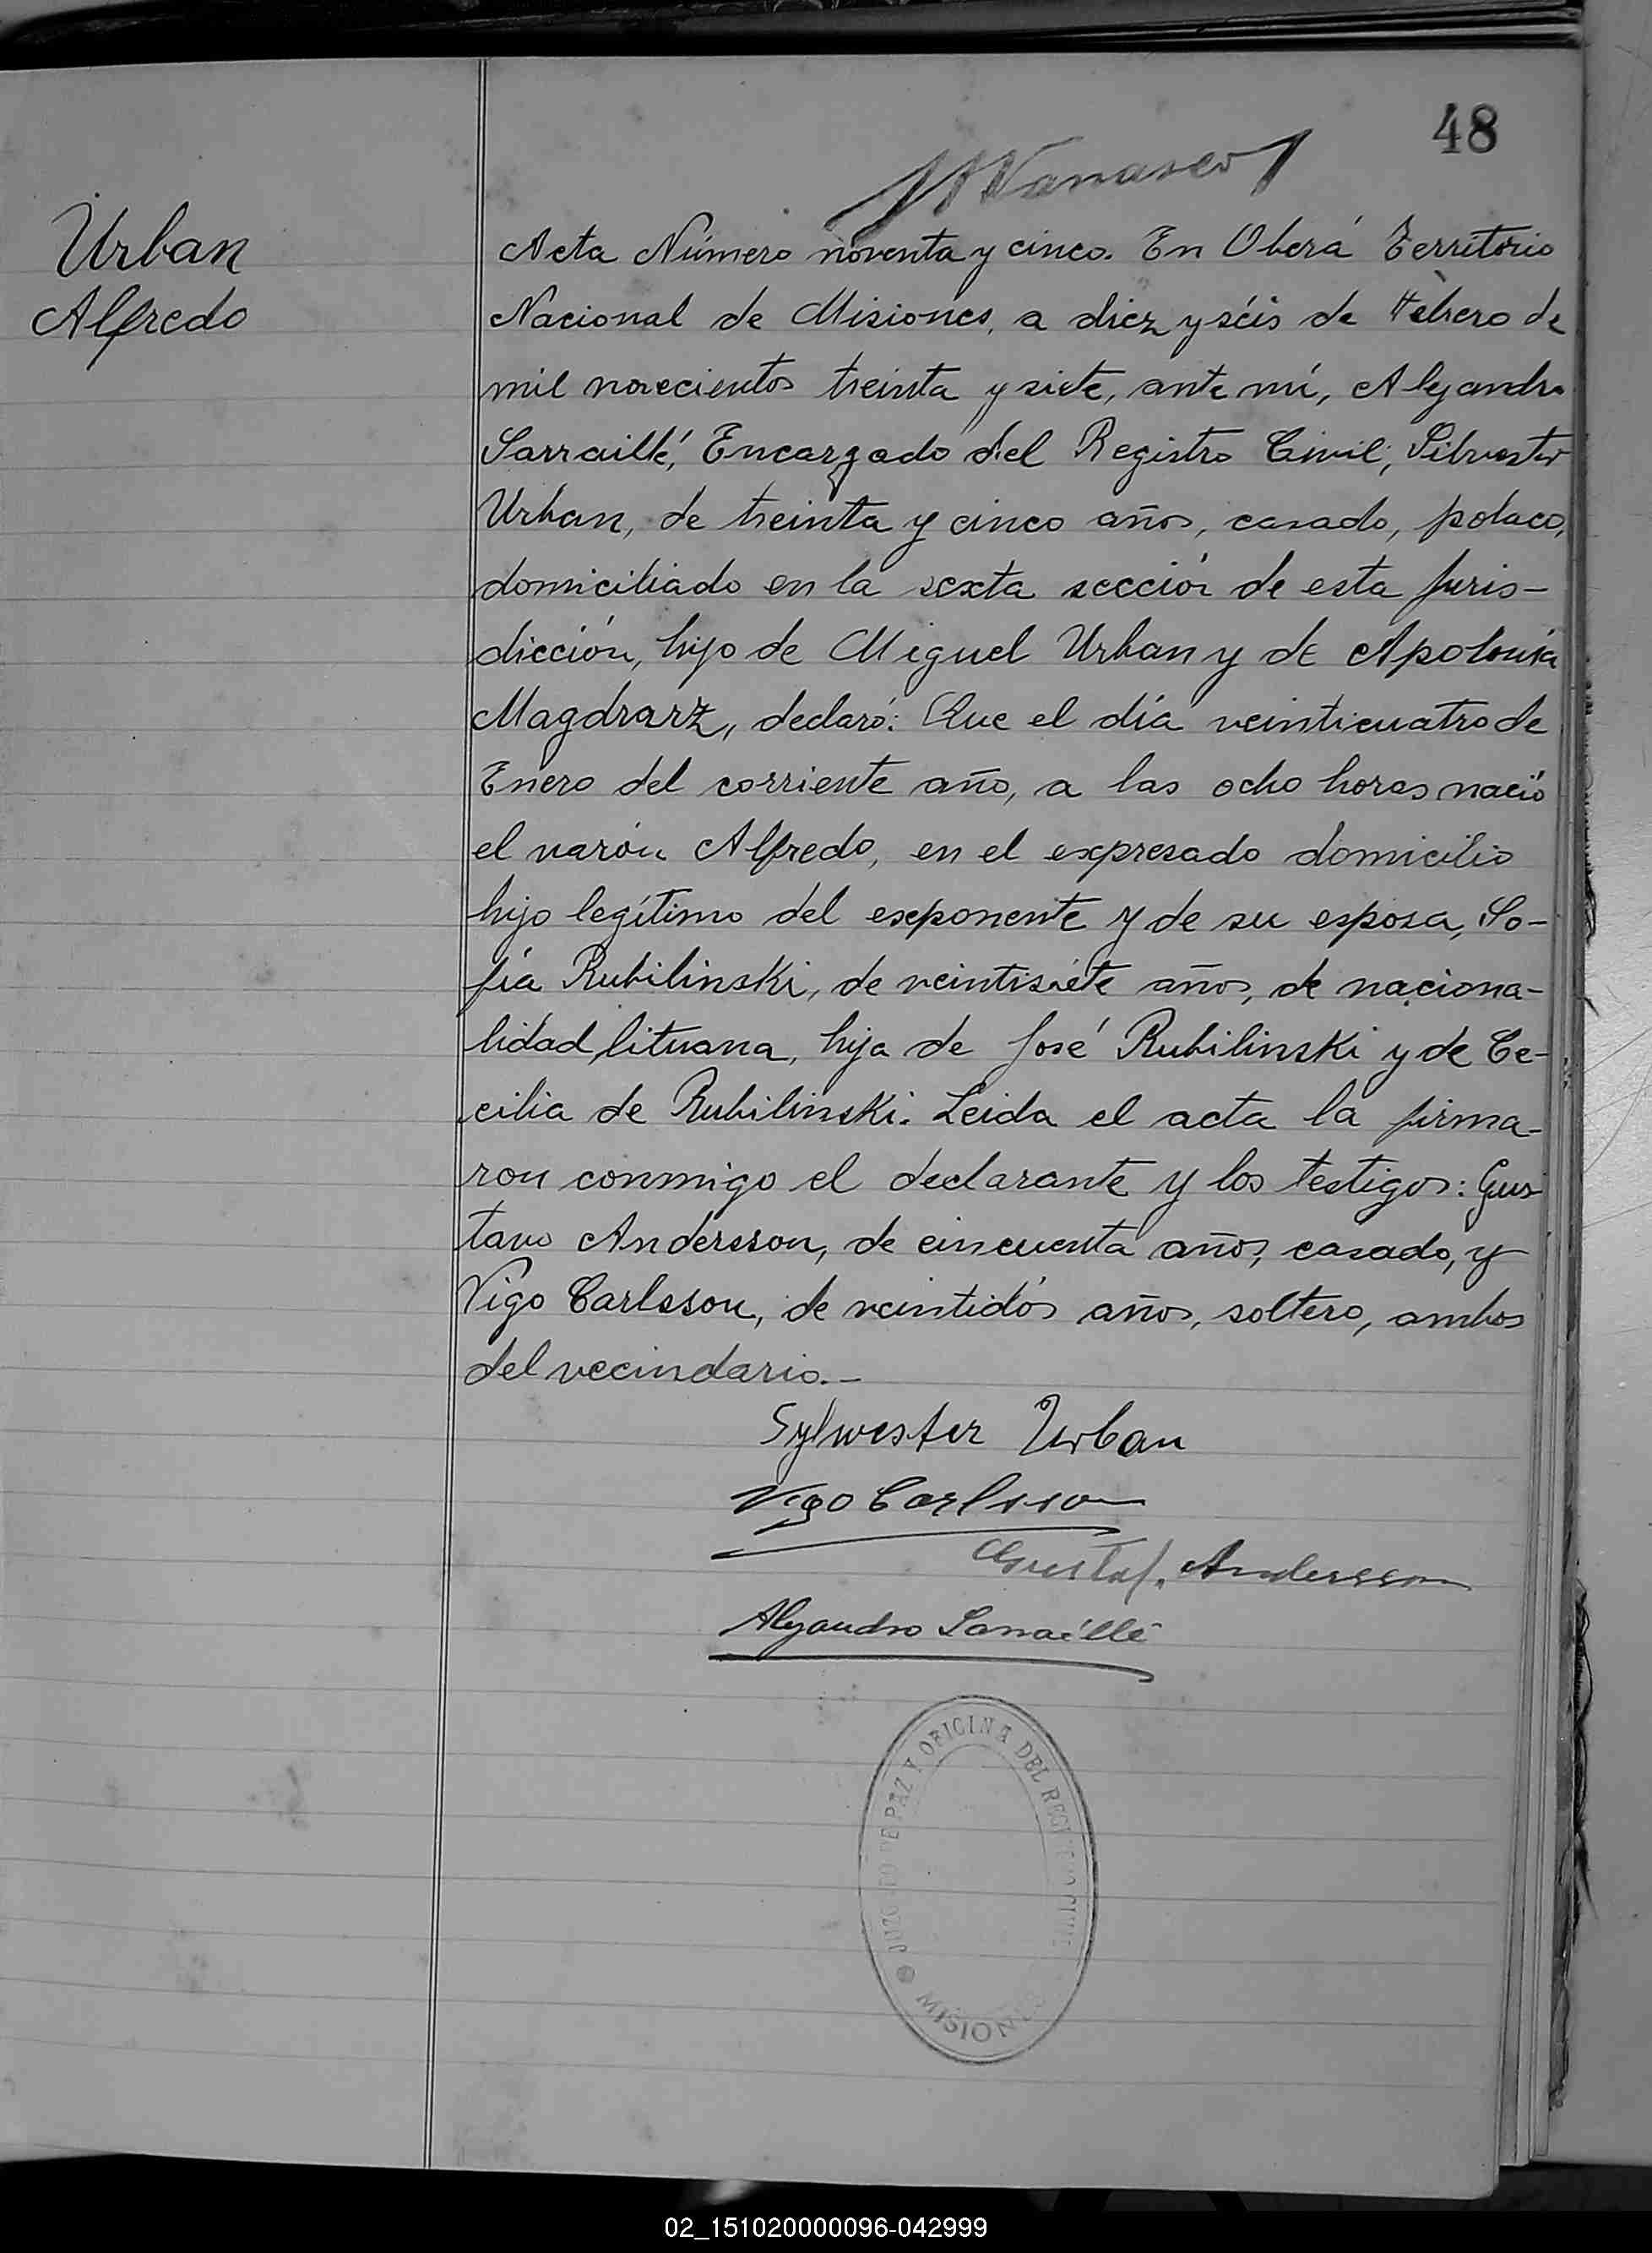 48
Urban
Alfredo
Acta Número noventa y cinco. En Oberá Territorio
Nacional de Misiones, a diez y séis de Febrero de
mil novecientos treinta y siete, ante mí, Alejandro
Sarraillé, Encargado del Registro Civil; Silvester
Urban, de treinta y cinco años, casado, polaco,
domiciliado en la sexta sección de esta juris-
dicción, hijo de Miguel Urban y de Apolonia
Magdrarz, declaró: Que el día veinticuatro de
Enero del corriente año, a las ocho horas nació
el varón Alfredo, en el expresado domicilio
hijo legítimo del exponente y de su esposa, So-
fía Rubilinski, de veintisiete años, de naciona-
lidad lituana, hija de José Rubilinski y de Ce-
cilia de Rubilinski. Leida el acta la firma-
ron conmigo el declarante y los testigos: Gus
tavo Andersson, de cincuenta años, casado, y
Vigo Carlsson, de veintidós años, soltero, ambos
del vecindario.-
Sylwester Urban
Vigo Carlsson
Gustaf. Andersson
Alejandro Sarraillé
JUZGADO DE PAZ Y OFICINA DEL REGISTRO CIVIL
MISIONES
02_151020000096-042999